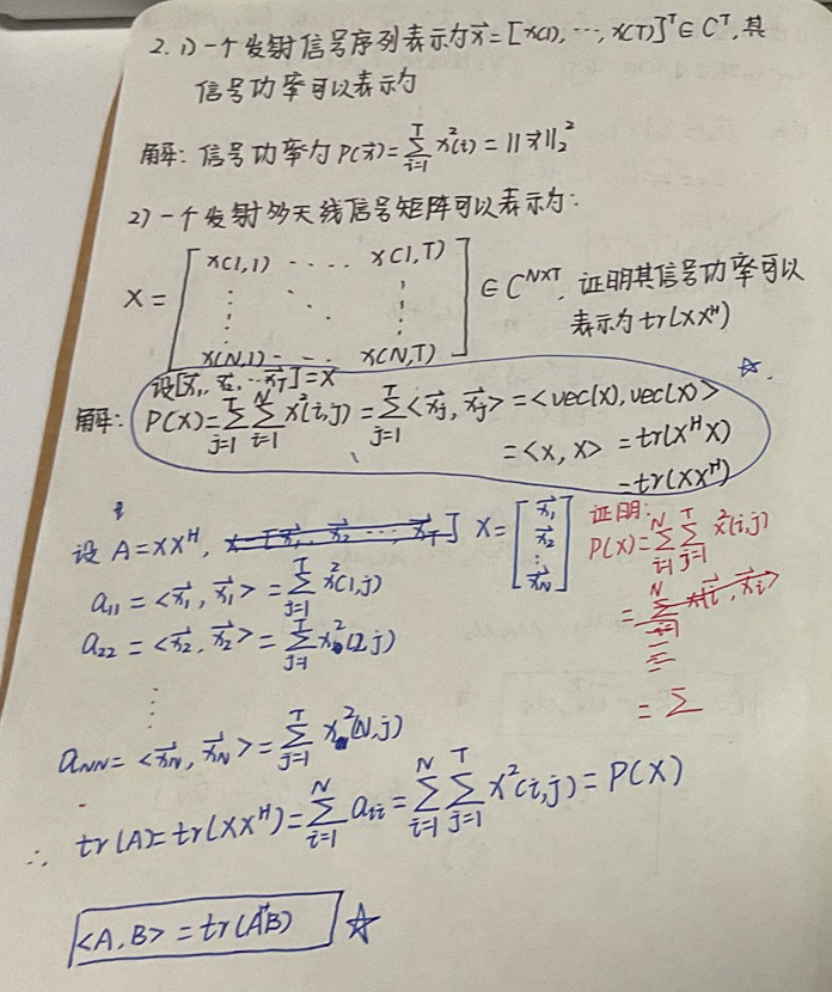 2. 1) 一个发射信号序列表示为x⃗=[x(1),⋯,x(T)]ᵀ∈Cᵀ,其
信号功率可以表示为
解: 信号功率为 P(x⃗)=∑_{i=1}^{T} x²(i)=||x⃗||₂²
2) 一个发射多天线信号矩阵可以表示为:
X = [x(1,1) ⋯ x(1,T) ⋮ ⋱ ⋮ x(N,1) ⋯ x(N,T)] ∈C^{N×T}, 证明其信号功率可以
表示为tr(XXᴴ)
设[x⃗₁, x⃗₂, ⋯x⃗_T]=X
解: P(X)=∑_{j=1}^{T}∑_{i=1}^{N} x²(i,j)=∑_{j=1}^{T}<x⃗_j, x⃗_j> =<vec(X), vec(X)>
=<X, X> =tr(XᴴX)
=tr(XXᴴ)
设 A=XXᴴ, X=[x⃗₁ x⃗₂ ⋮ x⃗_N]
a₁₁=<x⃗₁, x⃗₁> =∑_{j=1}^{T} x²(1,j)
a₂₂=<x⃗₂, x⃗₂> =∑_{j=1}^{T} x²(2,j)
⋮
a_{NN}=<x⃗_N, x⃗_N> =∑_{j=1}^{T} x²(N,j)
∴ tr(A)=tr(XXᴴ)=∑_{i=1}^{N} a_{ii}=∑_{i=1}^{N}∑_{j=1}^{T} x²(i,j)=P(X)
<A,B> =tr(AᴴB) ☆
证明:
P(X)=∑_{i=1}^{N}∑_{j=1}^{T} x²(i,j)
=
=∑